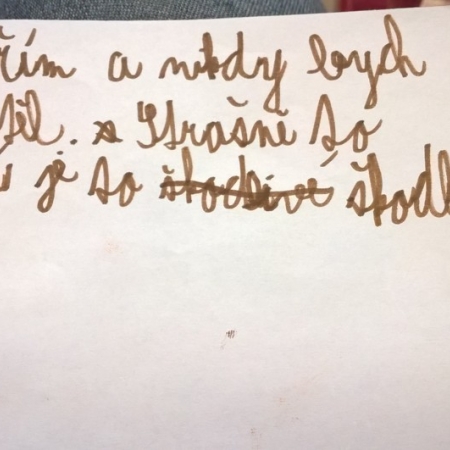 řím a nikdy bych
těl. Strašně to
je to škodl